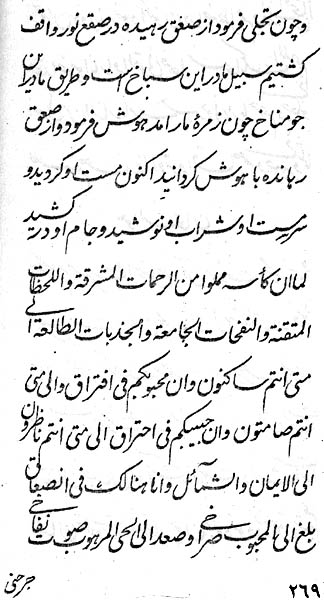 و چون تجلی فرمود از صعق رهیده در صقع نور واقف
کشتیم سبیل ما در این سباخ است و طریق ما در این
جو مناخ چون زمرهٔ ما را مدهوش فرمود و از صعق
رهانده با هوش کردانید اکنون مست او کردید و
سرمست او شراب او نوشید و جام او در کشید
لما ان کأسه مملوا من الرحمات المشرقة و اللحظات
المتقنة و النفحات الجامعة و الجذبات الطالعة الی
متی انتم ساکنون و ان محبوبکم فی افتراق و الی متی
انتم صامتون و ان حبیبکم فی احتراق الی متی انتم ناظرون
الی الایمان و الشمائل و انا هنالک فی انصعاق
بلغ الی المحبوب صراخی و صعد الی الحی المرهوب صوت نفاخی
۲۶۹